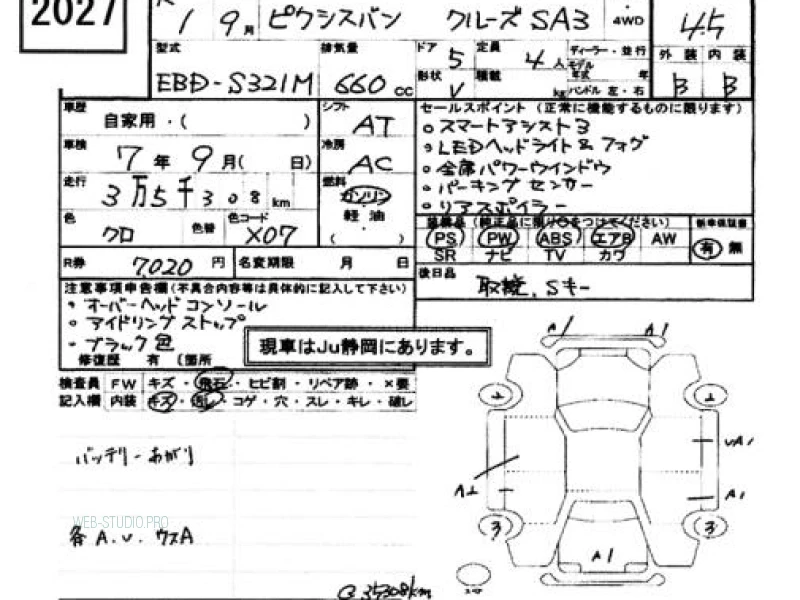 2027
1 9月 ピクシスバン クルーズ SA3 4WD 4.5
型式 排気量 ドア 5 定員 4人 ディーラー・並行 外装 内装
モデル年式 年
EBD-S321M 660 cc 形状 V 積載 kg ハンドル 左・右 B B
車歴 自家用・( ) シフト AT セールスポイント (正常に機能するものに限ります)
スマートアシスト3
車検 7年9月( 日) 冷房 AC LEDヘッドライト & フォグ
全席パワーウインドウ
走行 3万5千308km 燃料 ガソリン パーキングセンサー
軽油 リアスポイラー
色 クロ 色替 色コード X07 ( . )
装備品 (純正品に限り○をつけてください) 新車保証書
PS PW ABS エアB AW 有 無
SR ナビ TV カワ
R券 7,020円 名変期限 月 日 後日品 取説、Sキー
注意事項申告欄(不具合内容等は具体的に記入して下さい)
オーバーヘッドコンソール
アイドリングストップ
ブラック色
修復歴 有 (箇所
現車はJu静岡にあります。
検査員 FW キズ・飛石・ヒビ割・リペア跡・×要
記入欄 内装 キズ・汚レ・コゲ・穴・スレ・キレ・破レ
バッテリーあがり
WEB-STUDIO.PRO
各 A.U. ウスA
35308km
A1 A1
UA1
A2 A1
3 3
A1